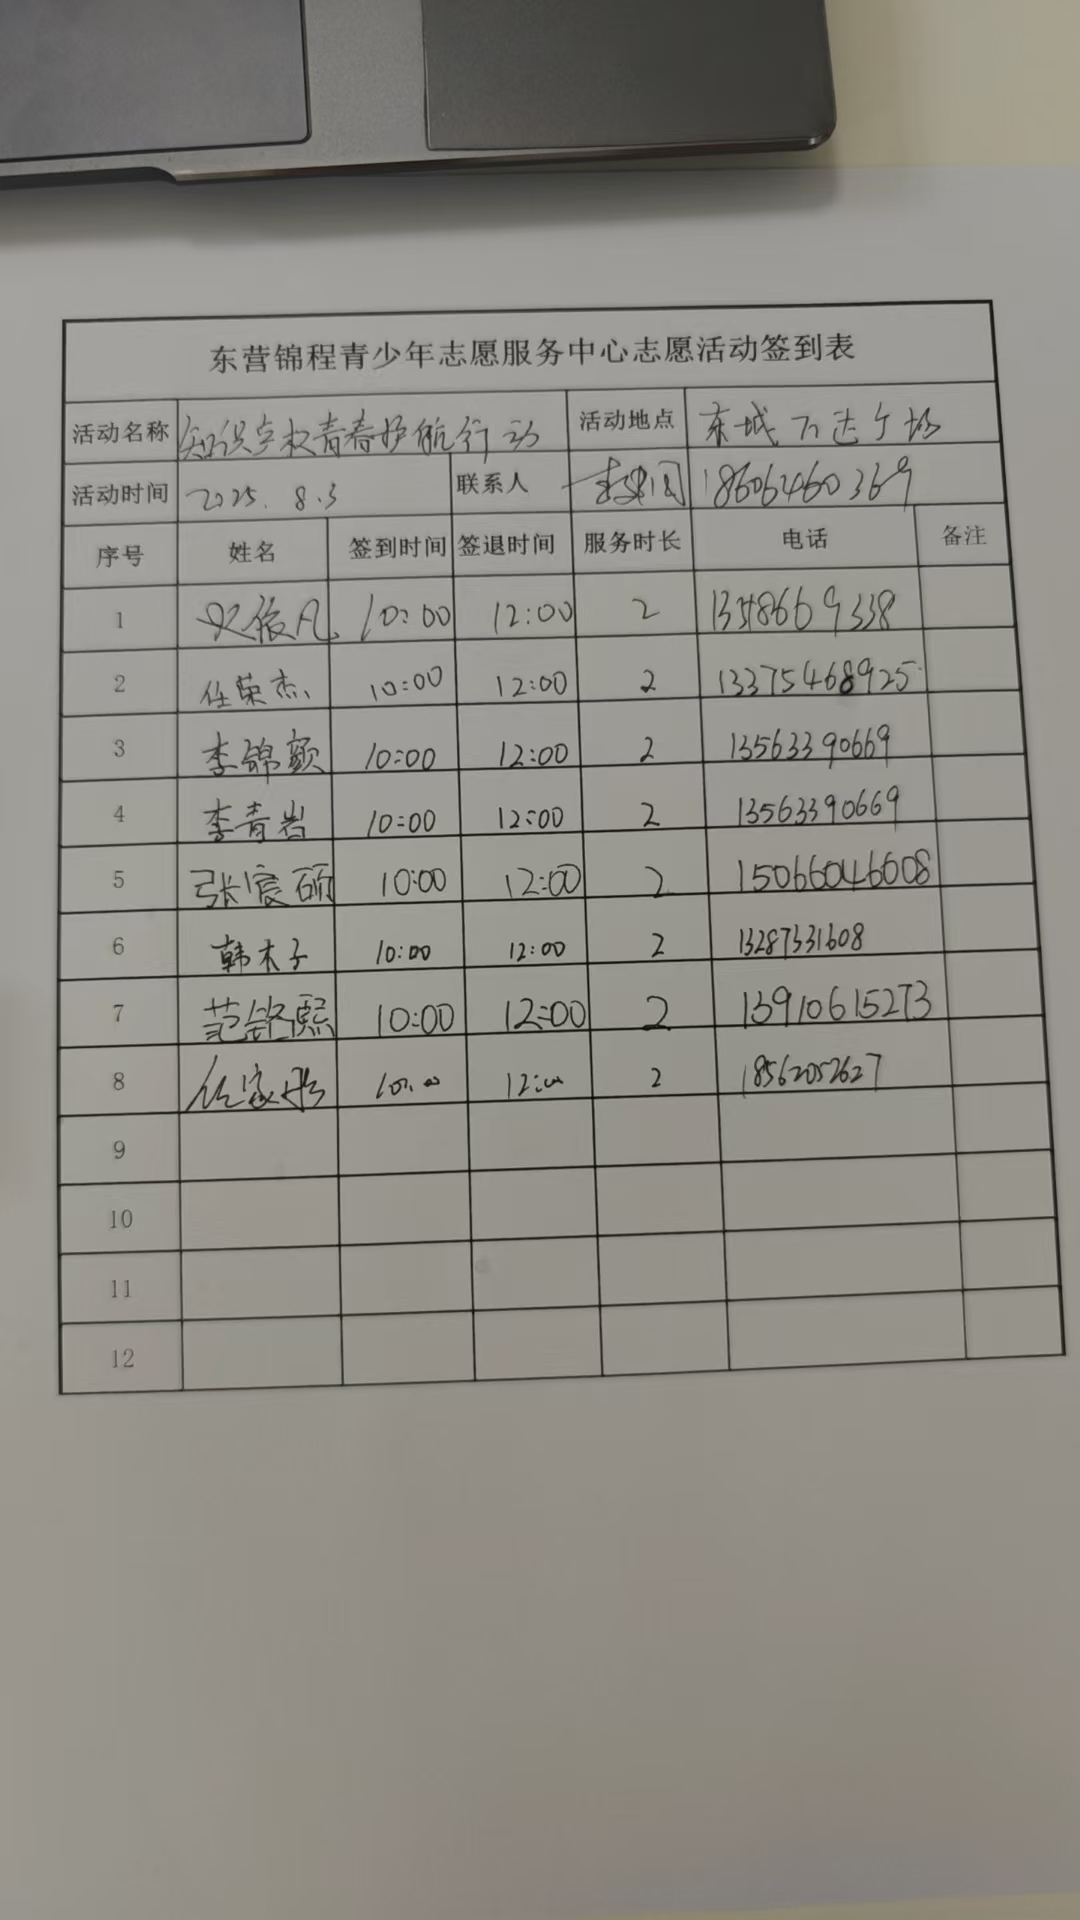 东营锦程青少年志愿服务中心志愿活动签到表
活动名称 知识产权青春护航行动 活动地点 东城万达广场
活动时间 2025.8.3 联系人 18606460369
序号 姓名 签到时间 签退时间 服务时长 电话 备注
1 10:00 12:00 2
2 任荣杰 10:00 12:00 2 13375468925
3 李锦颢 10:00 12:00 2 13563390669
4 李青岩 10:00 12:00 2 13563390669
5 张宸硕 10:00 12:00 2 15066046008
6 韩木子 10:00 12:00 2 13287331608
7 范铭熙 10:00 12:00 2 13910615273
8 任家彤 10:00 12:00 2 18562052627
9
10
11
12